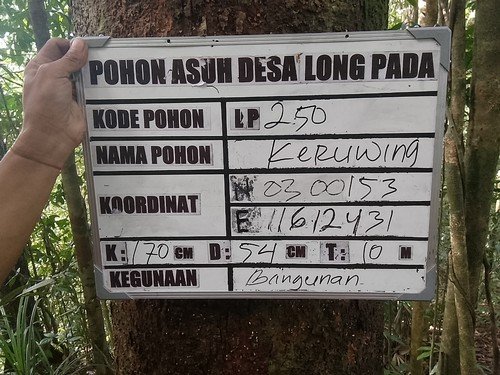 POHON ASUH DESA LONG PADA
KODE POHON LP 250
NAMA POHON Keruwing
KOORDINAT N 03 00153
E 11612431
K: 170 CM D: 54 CM T: 10 M
KEGUNAAN Bangunan